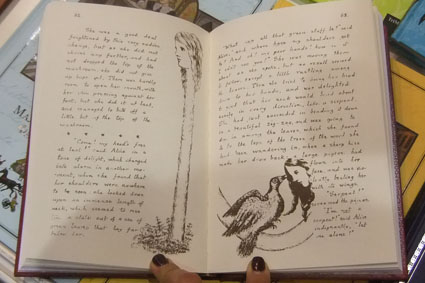 62
She was a good deal
frightened by this very sudden
change, but as she did not
shrink any further, and had
not dropped the top of the
mushroom, she did not give
up hope yet. There was hardly
room to open her mouth, with
her chin pressing against her
foot, but she did it at last,
and managed to bite off a
little bit of the top of the
mushroom.
* * * * *
"Come! my head's free
at last!" said Alice in a
tone of delight, which changed
into alarm in another mo-
ment, when she found that
her shoulders were nowhere
to be seen: she looked down
upon an immense length of
neck, which seemed to rise
like a stalk out of a sea of
green leaves that lay far
below her.
63
"What can all that green stuff be?" said
Alice, "and where have my shoulders got
to? And oh! my poor hands! how is it
I can't see you?" She was moving them
about as she spoke, but no result seemed
to follow, except a little rustling among
the leaves. Then she tried to bring her head
down to her hands, and was delighted
to find that her neck would bend about
easily in every direction, like a serpent.
She had just succeeded in bending it down
in a beautiful zig-zag, and was going to
dive in among the leaves, which she found
to be the tops of the trees of the wood she
had been wandering in, when a sharp hiss
made her draw back: a large pigeon had
flown into her
face, and was vio-
lently beating her
with its wings.
"Serpent!" screamed the pigeon.
"I'm not a
serpent!" said Alice
indignantly, "let
me alone!"